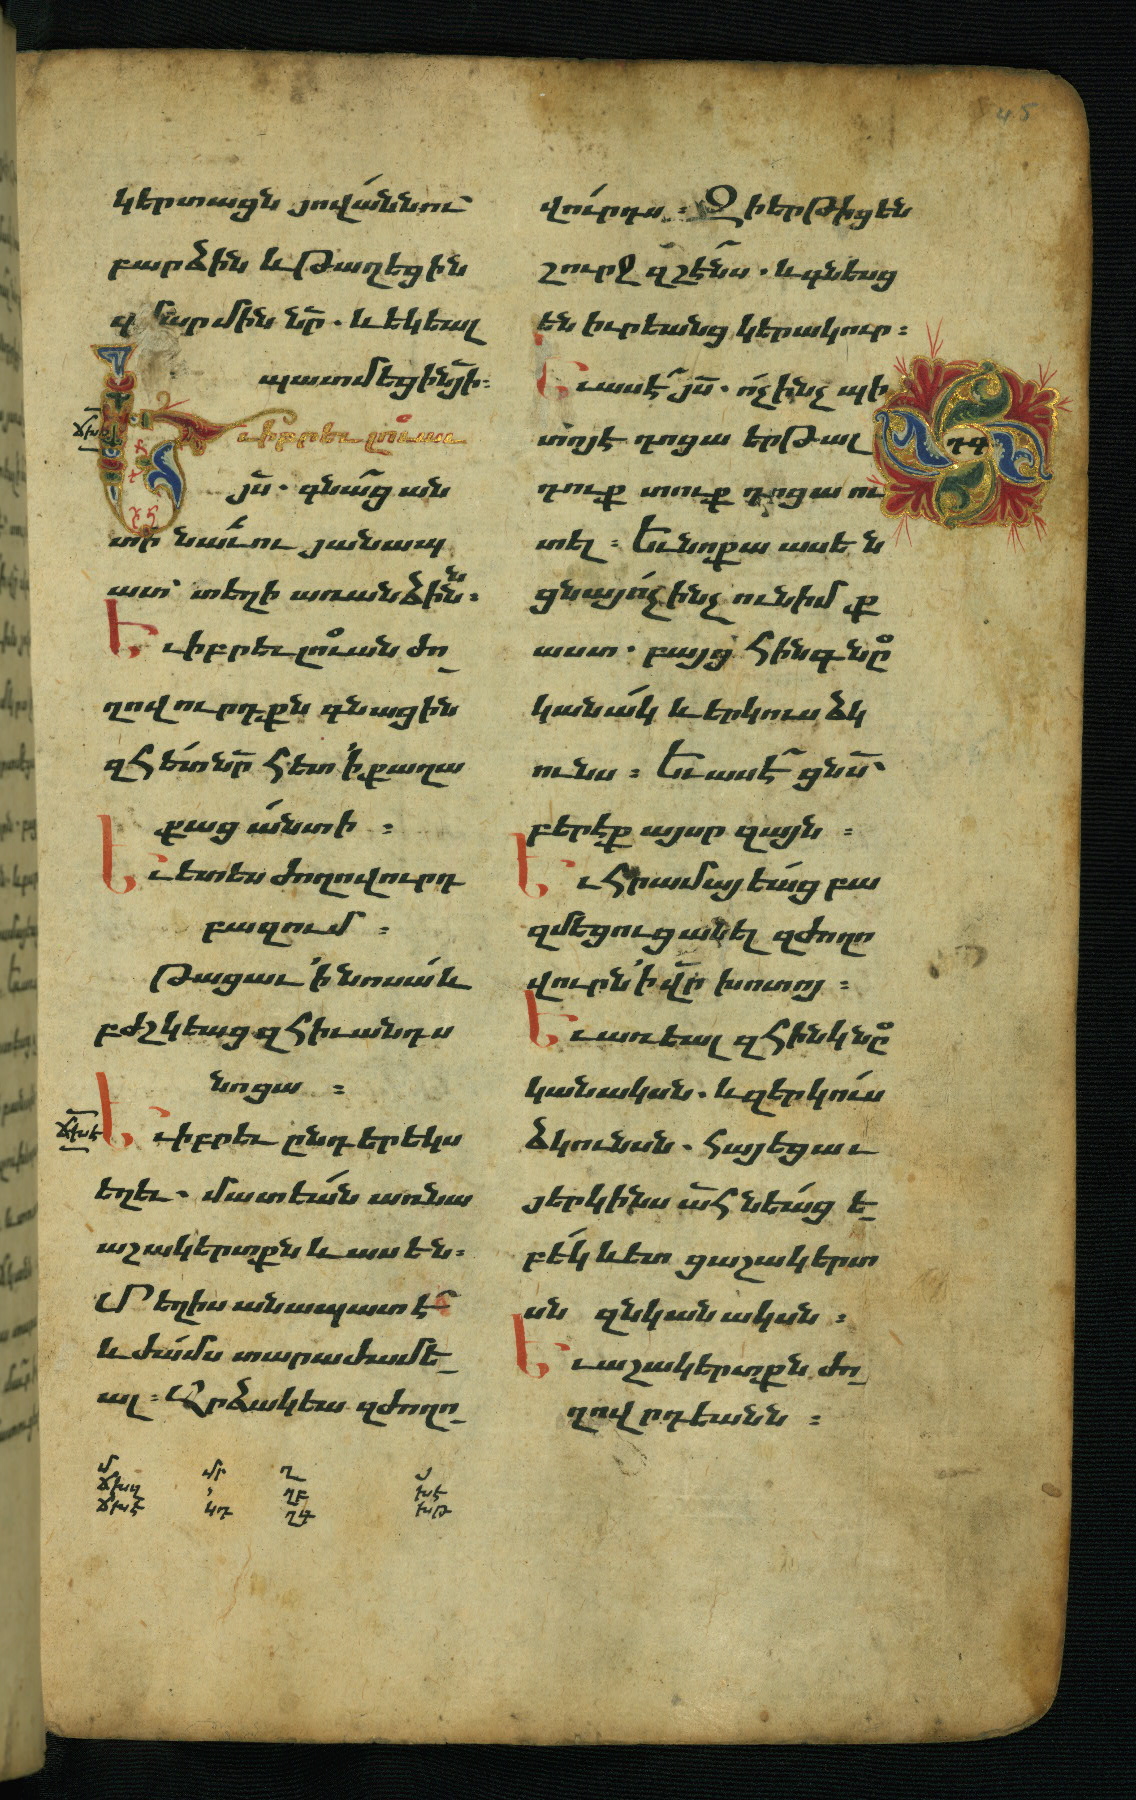 45
կերտացն յովաննու
բարձին և թաղեցին
զմարմին նր. և եկեալ
պատմեցին յի:
ճխգ
Եւ իբրեւ լուաւ
յս. գնաց ան
տի նաւու յանապ
ատ տեղի առանձինն:
Եւ իբրեւ լուան ժո
ղովուրդքն գնացին
զհետ նր հետ ի քաղա
քաց անտի :
Եւ ետես ժողովուրդ
բազում :
Թացաւ ի նոսա և
բժշկեաց զհիւանդս
նոցա :
ճխէ
Եւ իբրեւ ընդ երեկս
եղեւ. մատեան առ նա
աշակերտքն և ասեն:
Տեղիս անապատ է
և ժամս տարաժամե
ալ: Արձակեա զժողո
վուրդս: Զի երթիցեն
շուրջ զշէնս. և գնեսց
են իւրեանց կերակուր:
Եւ ասէ յս. ոչ ինչ պի
տոյէ դոցա երթալ
դդ
դուք տուք դոցա ու
տել: Եւ նոքա ասեն
ցնա, ոչ ինչ ունիմք
աստ. բայց հինգ նը
կանակ և երկուս ձկ
ունս: Եւ ասէ ցնս
բերէք այսր զայն :
Եւ հրամայեաց բա
զմեցուցանել զժողո
վուրն ի վր խոտոյ :
Եւ առեալ զհինկ նը
կանական. և զերկուս
ձկունսն. հայեցաւ
յերկինս ահնեաց ե
բեկ և ետ ցաշակերտ
սն զնկանական :
Եւ աշակերտքն ժո
ղովրդեանն :